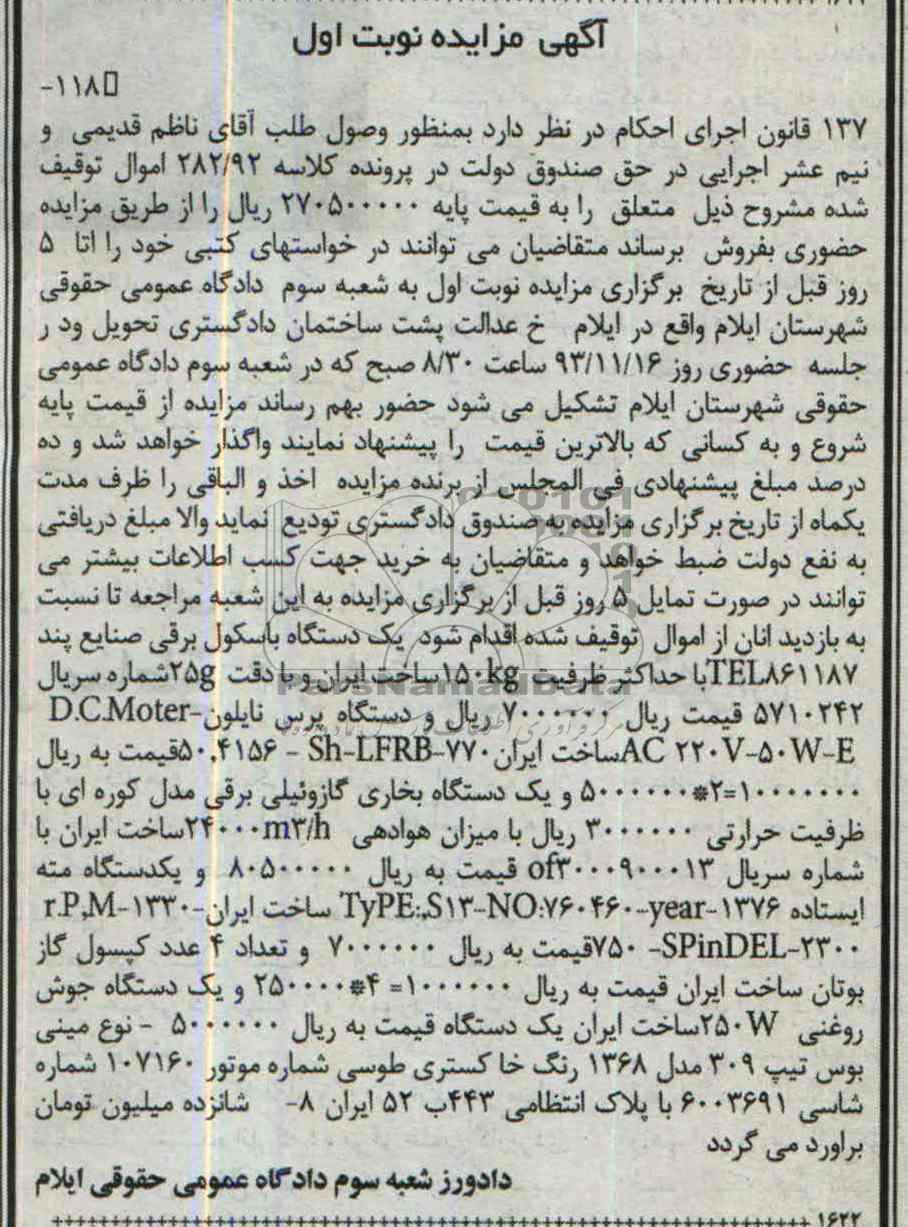 آگهی مزایده نوبت اول
-۱۱۸
۱۳۷ قانون اجرای احکام در نظر دارد بمنظور وصول طلب آقای ناظم قدیمی و
نیم عشر اجرایی در حق صندوق دولت در پرونده کلاسه ۲۸۲/۹۲ اموال توقیف
شده مشروح ذیل متعلق را به قیمت پایه ۲۷۰۵۰۰۰۰۰ ریال را از طریق مزایده
حضوری بفروش برساند متقاضیان می توانند در خواستهای کتبی خود را اتا ۵
روز قبل از تاریخ برگزاری مزایده نوبت اول به شعبه سوم دادگاه عمومی حقوقی
شهرستان ایلام واقع در ایلام خ عدالت پشت ساختمان دادگستری تحویل ود ر
جلسه حضوری روز ۹۳/۱۱/۱۶ ساعت ۸/۳۰ صبح که در شعبه سوم دادگاه عمومی
حقوقی شهرستان ایلام تشکیل می شود حضور بهم رساند مزایده از قیمت پایه
شروع و به کسانی که بالاترین قیمت را پیشنهاد نمایند واگذار خواهد شد و ده
درصد مبلغ پیشنهادی فی المجلس از برنده مزایده اخذ و الباقی را ظرف مدت
یکماه از تاریخ برگزاری مزایده به صندوق دادگستری تودیع نماید والا مبلغ دریافتی
به نفع دولت ضبط خواهد و متقاضیان به خرید جهت کسب اطلاعات بیشتر می
توانند در صورت تمایل ۵ روز قبل از برگزاری مزایده به این شعبه مراجعه تا نسبت
به بازدید انان از اموال توقیف شده اقدام شود یک دستگاه باسکول برقی صنایع پند
TEL۸۶۱۱۸۷با حداکثر ظرفیت ۱۵۰kgساخت ایران و با دقت ۲۵gشماره سریال
۵۷۱۰۲۴۲ قیمت ریال ۷۰۰۰۰۰۰ ریال و دستگاه پرس نایلون-D.C.Moter
AC ۲۲۰V-۵۰W-Eساخت ایران۷۷۰-Sh-LFRB - ۵۰,۴۱۵۶قیمت به ریال
۵۰۰۰۰۰۰*۲=۱۰۰۰۰۰۰۰ و یک دستگاه بخاری گازوئیلی برقی مدل کوره ای با
ظرفیت حرارتی ۳۰۰۰۰۰۰ ریال با میزان هوادهی ۲۴۰۰۰m۳/hساخت ایران با
شماره سریال of۳۰۰۰۹۰۰۰۱۳ قیمت به ریال ۸۰۵۰۰۰۰۰ و یکدستگاه مته
ایستاده TyPE:,S۱۳-NO:۷۶۰۴۶۰-year-۱۳۷۶ ساخت ایران-r.P,M-۱۳۳۰
SPinDEL-۲۳۰۰- ۷۵۰قیمت به ریال ۷۰۰۰۰۰۰ و تعداد ۴ عدد کپسول گاز
بوتان ساخت ایران قیمت به ریال ۱۰۰۰۰۰۰= ۴*۲۵۰۰۰۰ و یک دستگاه جوش
روغنی ۲۵۰Wساخت ایران یک دستگاه قیمت به ریال ۵۰۰۰۰۰۰ - نوع مینی
بوس تیپ ۳۰۹ مدل ۱۳۶۸ رنگ خا کستری طوسی شماره موتور ۱۰۷۱۶۰ شماره
شاسی ۶۰۰۳۶۹۱ با پلاک انتظامی ۴۴۳ب ۵۲ ایران ۸- شانزده میلیون تومان
براورد می گردد
دادورز شعبه سوم دادگاه عمومی حقوقی ایلام
۱۶۲۲
ParsNamadData